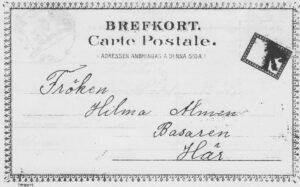 BREFKORT.
Carte Postale.
(ADRESSEN ANBRINGAS Å DENNA SIDA.)
Fröken
Hilma Almén
Basaren
Här